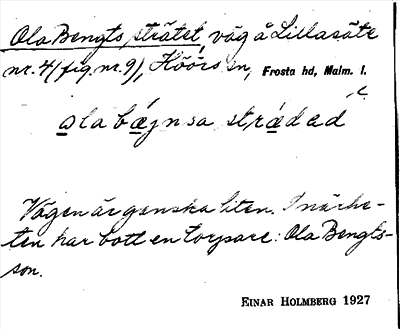 Ola Bengts strätet, väg å Lillasäte
nr. 4 (fig. nr. 9), Höörs sn, Frosta hd, Malm. l.
ola bæynsa strædad
Vägen är ganska liten. I närhe-
ten har bott en torpare: Ola Bengts-
son.
EINAR HOLMBERG 1927